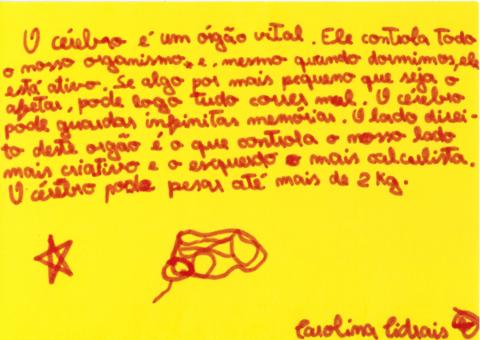 O cérebro é um órgão vital. Ele controla todo
o nosso organismo e, mesmo quando dormimos, ele
está ativo. Se algo por mais pequeno que seja o
afetar, pode logo tudo correr mal. O cérebro
pode guardar infinitas memórias. O lado direi-
to deste orgão é o que controla o nosso lado
mais criativo e o esquerdo o mais calculista.
O cérebro pode pesar até mais de 2 Kg.
Carolina Cidrais